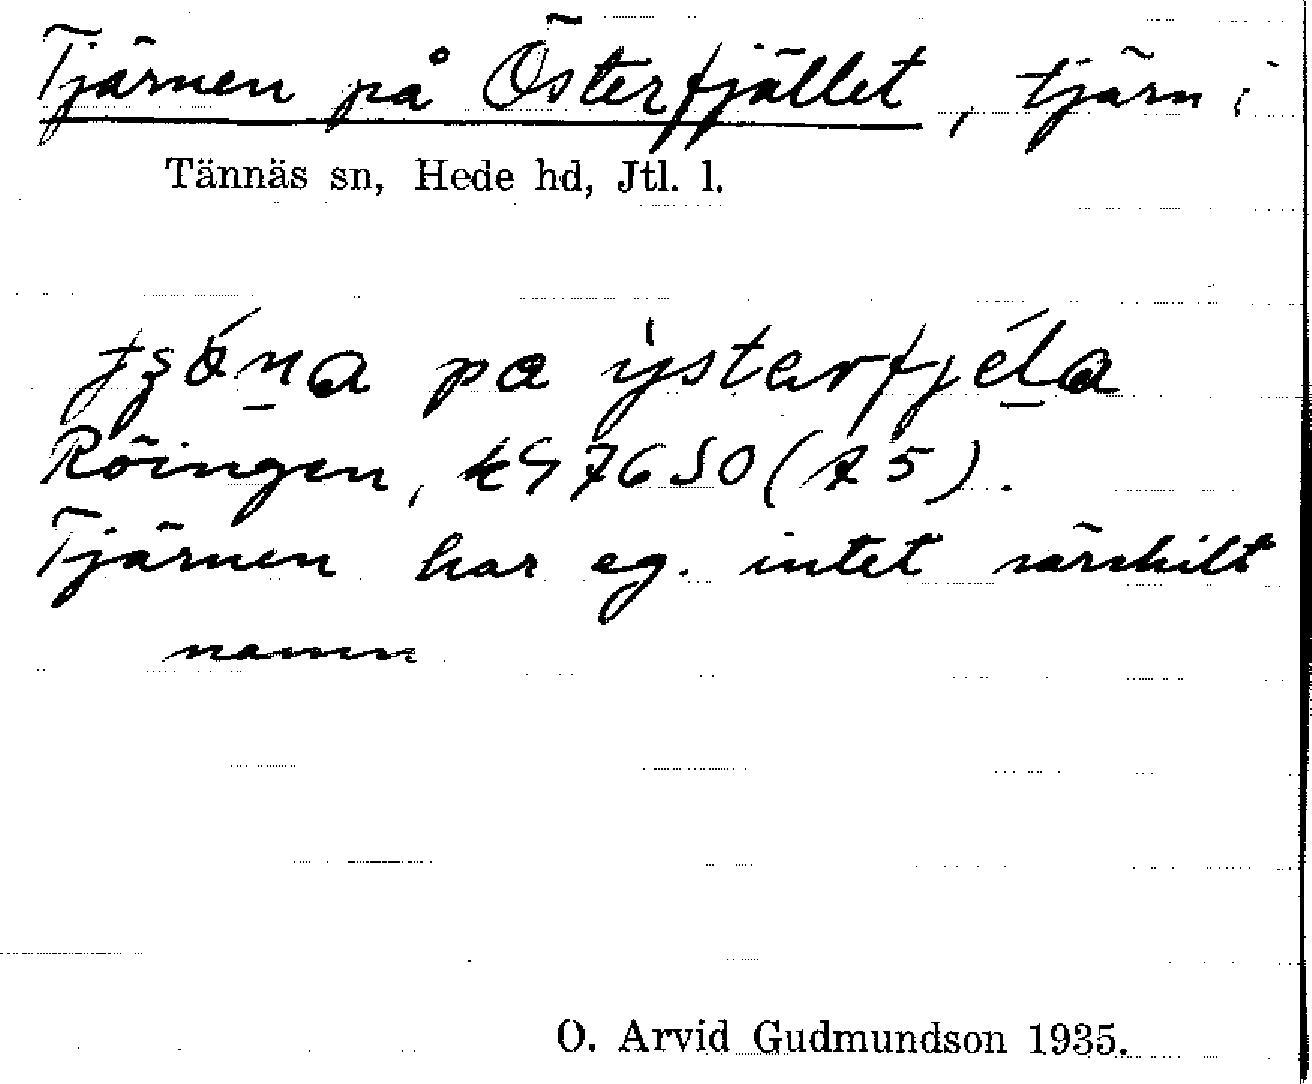 Tjärnen på Österfjället, tjärn i
Tännäs sn, Hede hd, Jtl. l.
pa
Röingen,
Tjärnen har eg. intet särskilt
namn
O. Arvid Gudmundson 1935.